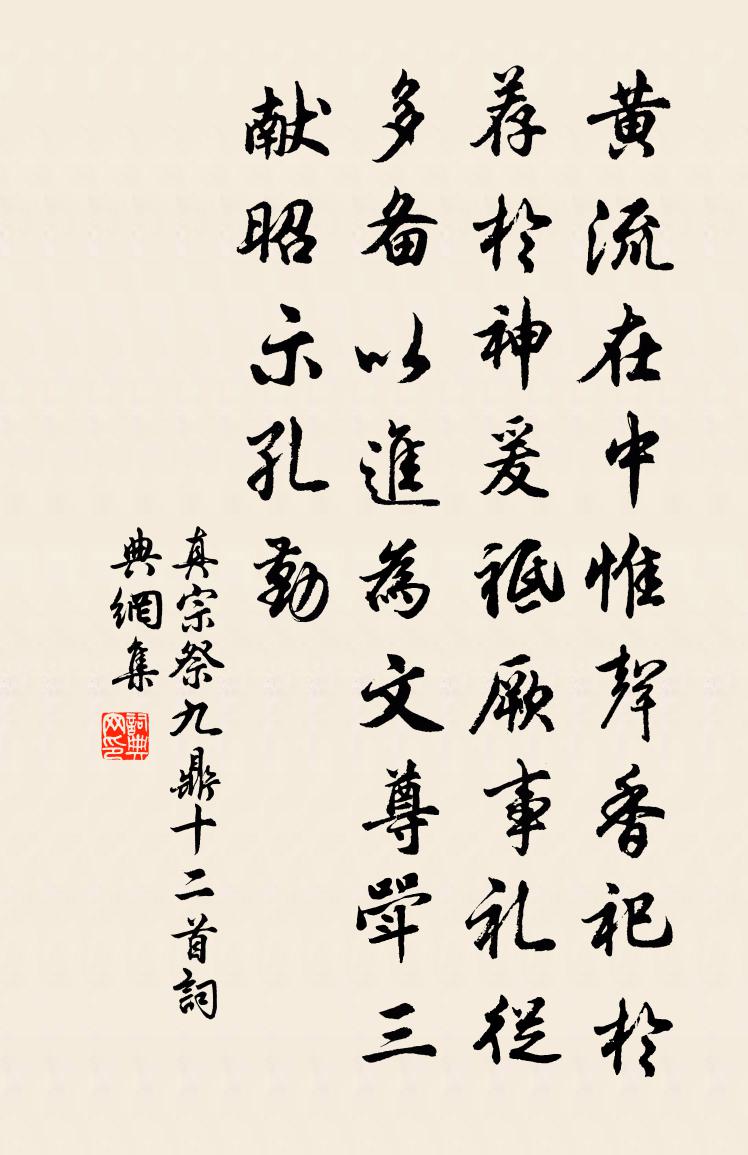 黄流在中惟聲香祀於
荐於神爰祗厥事礼從
多备以進為文尊斝三
献昭示孔勤
真宗祭九鼎十二首詞
典網集
詞典网印